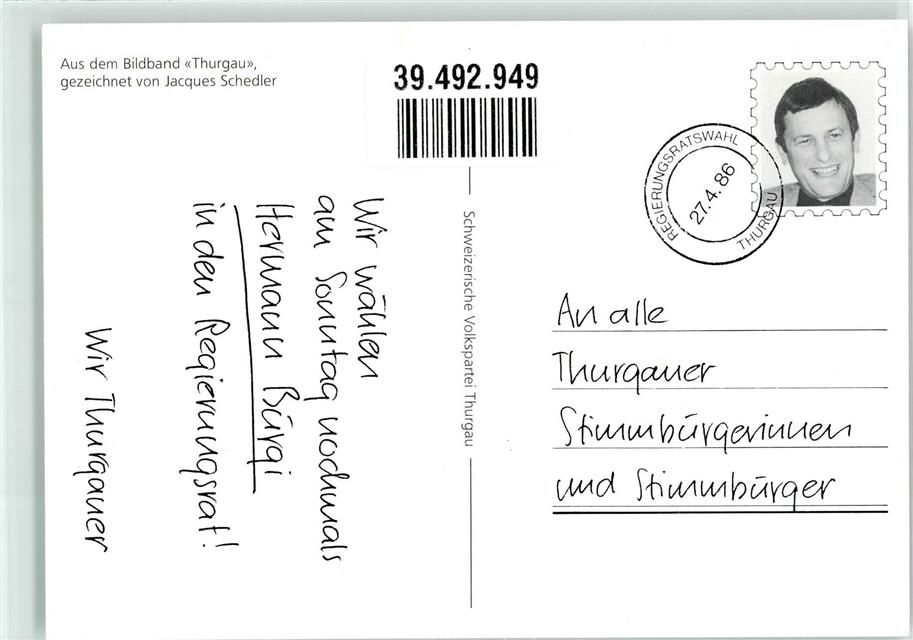 Aus dem Bildband «Thurgau»,
gezeichnet von Jacques Schedler
39.492.949
REGIERUNGSRATSWAHL
27.4.86
THURGAU
Wir wählen
am Sonntag nochmals
Hermann Bürgi
in den Regierungsrat!
Wir Thurgauer
Schweizerische Volkspartei Thurgau
An alle
Thurgauer
Stimmbürgerinnen
und Stimmbürger